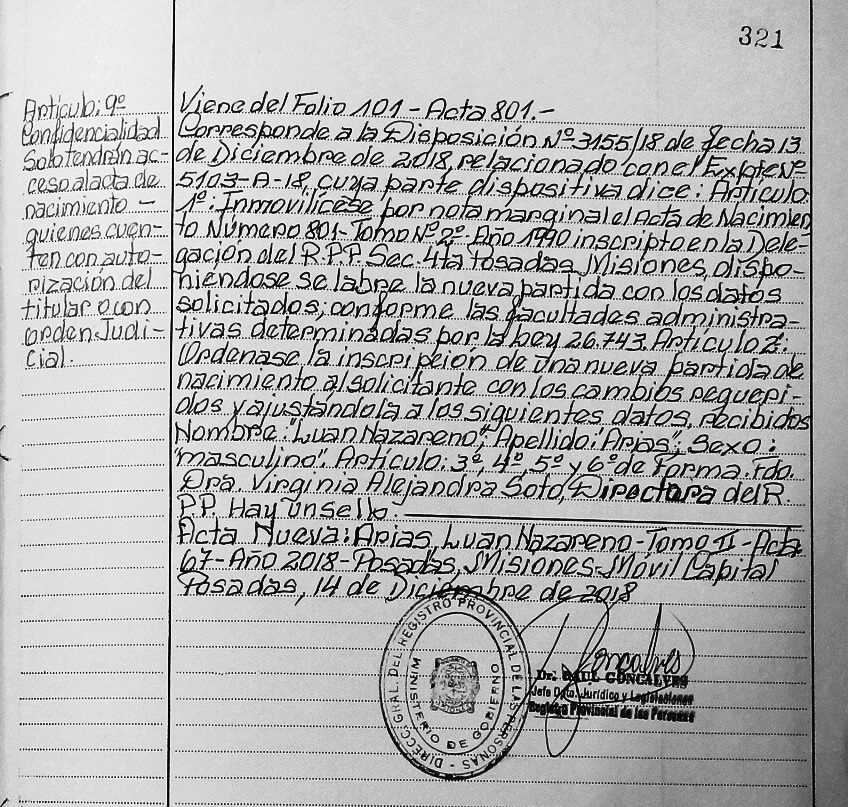 321
Artículo: 9º
Confidencialidad
Solo tendrán ac-
ceso al acta de
nacimiento -
quienes cuen-
ten con auto-
rización del
titular o con
orden Judi-
cial.
Viene del Folio 101 - Acta 801.-
Corresponde a la Disposición Nº 3155/18 de fecha 13
de Diciembre de 2018, relacionado con el Expte Nº
5103-A-18, cuya parte dispositiva dice: Artículo
1º: Inmovilícese por nota marginal el Acta de Nacimien
to Número 801-Tomo Nº 2º-Año 1990 inscripto en la Dele-
gación del R.P.P. Sec. 4ta Posadas, Misiones, dispo-
niéndose se labre la nueva partida con los datos
solicitados; conforme las facultades administra-
tivas determinadas por la Ley 26.743. Artículo 2:
Ordenase la inscripción de una nueva partida de
nacimiento al solicitante con los cambios requeri-
dos y ajustándola a los siguientes datos, recibidos
Nombre: "Luan Nazareno"; Apellido: "Arias"; Sexo:
"masculino". Artículo: 3º, 4º, 5º y 6º de Forma. Fdo.
Dra. Virginia Alejandra Soto, Directora del R.
P.P. Hay Un sello.
Acta Nueva: Arias, Luan Nazareno - Tomo II - Acta
67 - Año 2018 - Posadas, Misiones - Móvil Capital
Posadas, 14 de Diciembre de 2018
DIRECC. GRAL. DEL REGISTRO PROVINCIAL DE LAS PERSONAS -
MINISTERIO DE GOBIERNO
Goncalves
Dr. RAUL GONCALVES
Jefe Dpto. Jurídico y Legislaciones
Registro Provincial de las Personas